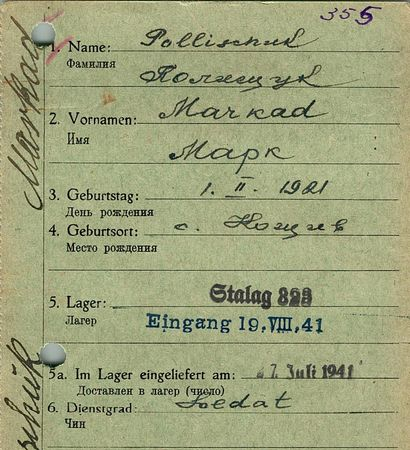 355
1. Name: Pollischuk
Фамилия
Полищук
2. Vornamen: Markad
Имя
Марк
3. Geburtstag: 1. II. 1921
День рождения
4. Geburtsort: с.
Место рождения
5. Lager: Stalag
Лагер
Eingang 19. VIII, 41
5a. Im Lager eingeliefert am: 27. Juli 1941
Доставлен в лагер (число)
6. Dienstgrad: Soldat
Чин
Markad